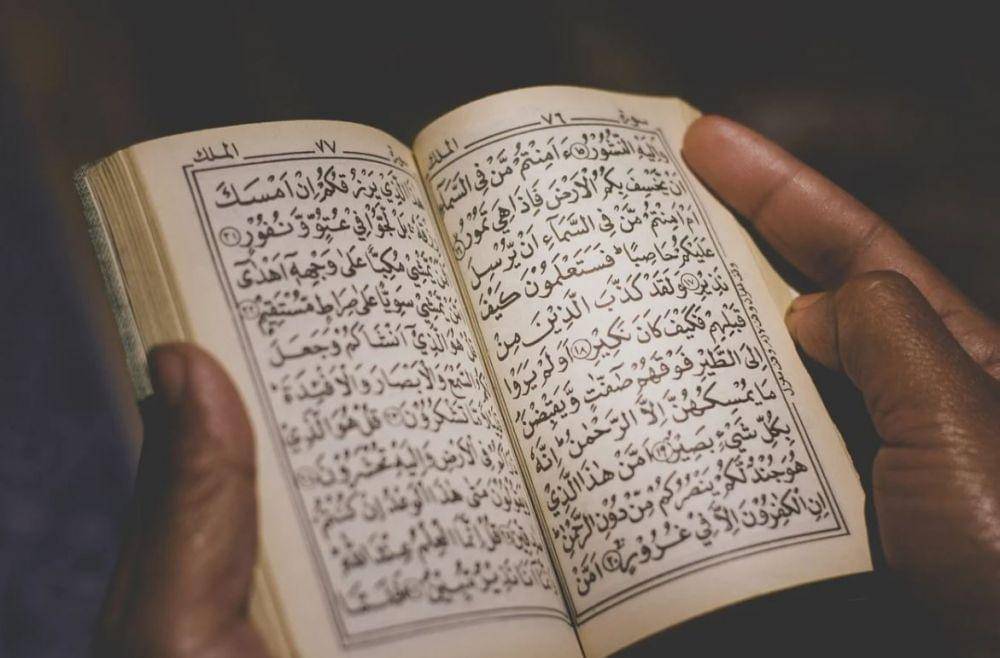 سورة ٧٦ الملك
وَاِلَيْهِ النُّشُوْرُ ١٥ ءَاَمِنْتُمْ مَّنْ فِي السَّمَآءِ
اَنْ يَّخْسِفَ بِكُمُ الْاَرْضَ فَاِذَا هِيَ تَمُوْرُ
اَمْ اَمِنْتُمْ مَّنْ فِي السَّمَآءِ اَنْ يُّرْسِلَ
عَلَيْكُمْ حَاصِبًا ؕ فَسَتَعْلَمُوْنَ كَيْفَ
نَذِيْرِ ١٧ وَلَقَدْ كَذَّبَ الَّذِيْنَ مِنْ
قَبْلِهِمْ فَكَيْفَ كَانَ نَكِيْرِ ١٨ اَوَلَمْ يَرَوْا
اِلَى الطَّيْرِ فَوْقَهُمْ صٰٓفّٰتٍ وَّيَقْبِضْنَ
مَا يُمْسِكُهُنَّ اِلَّا الرَّحْمٰنُ اِنَّهٗ
بِكُلِّ شَيْءٍ بَصِيْرٌ ١٩ اَمَّنْ هٰذَا الَّذِيْ
هُوَ جُنْدٌ لَّكُمْ يَنْصُرُكُمْ مِّنْ دُوْنِ الرَّحْمٰنِ
اِنِ الْكٰفِرُوْنَ اِلَّا فِيْ غُرُوْرٍ ٢٠ اَمَّنْ
٧٧ الملك
الَّذِيْ يَرْزُقُكُمْ اِنْ اَمْسَكَ
بَلْ لَّجُّوْا فِيْ عُتُوٍّ وَّنُفُوْرٍ ٢١
يَّمْشِيْ مُكِبًّا عَلٰى وَجْهِهٖٓ اَهْدٰٓى
يَّمْشِيْ سَوِيًّا عَلٰى صِرَاطٍ مُّسْتَقِيْمٍ ٢٢
هُوَ الَّذِيْٓ اَنْشَاَكُمْ وَجَعَلَ
السَّمْعَ وَالْاَبْصَارَ وَالْاَفْـِٕدَةَ
تَشْكُرُوْنَ ٢٣ قُلْ هُوَ الَّذِيْ
فِي الْاَرْضِ وَاِلَيْهِ تُحْشَرُوْنَ
مَتٰى هٰذَا الْوَعْدُ اِنْ كُنْتُمْ
قُلْ اِنَّمَا الْعِلْمُ عِنْدَ اللّٰهِ
اَنَا نَذِيْرٌ مُّبِيْنٌ فَلَمَّا